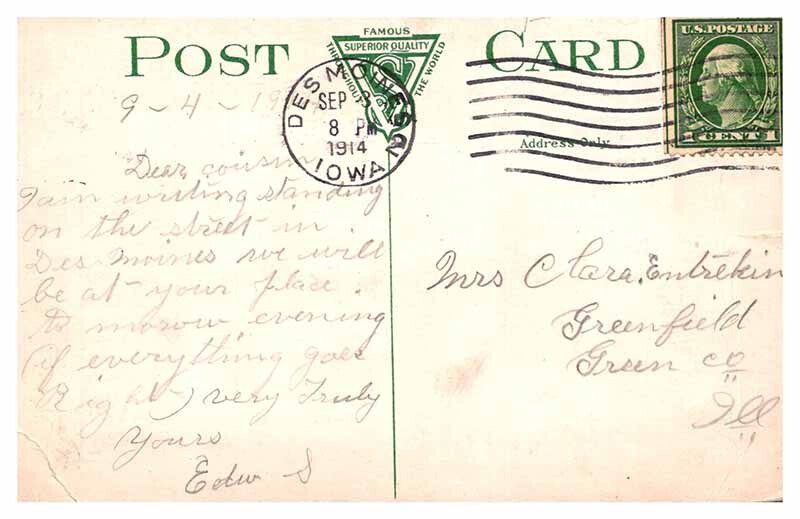 POST CARD
FAMOUS
SUPERIOR QUALITY
THROUGHOUT THE WORLD
U.S. POSTAGE
1 CENT 1
DES MOINES
SEP 3
8 PM
1914
IOWA
Address Only
9-4-19
Dear cousin
I am writing standing
on the street in
Des Moines we will
be at your place
to morow evening
(if everything goes
Right) very Truly
Yours
Edw S
Mrs Clara Entrekin
Greenfield
Green co
Ill